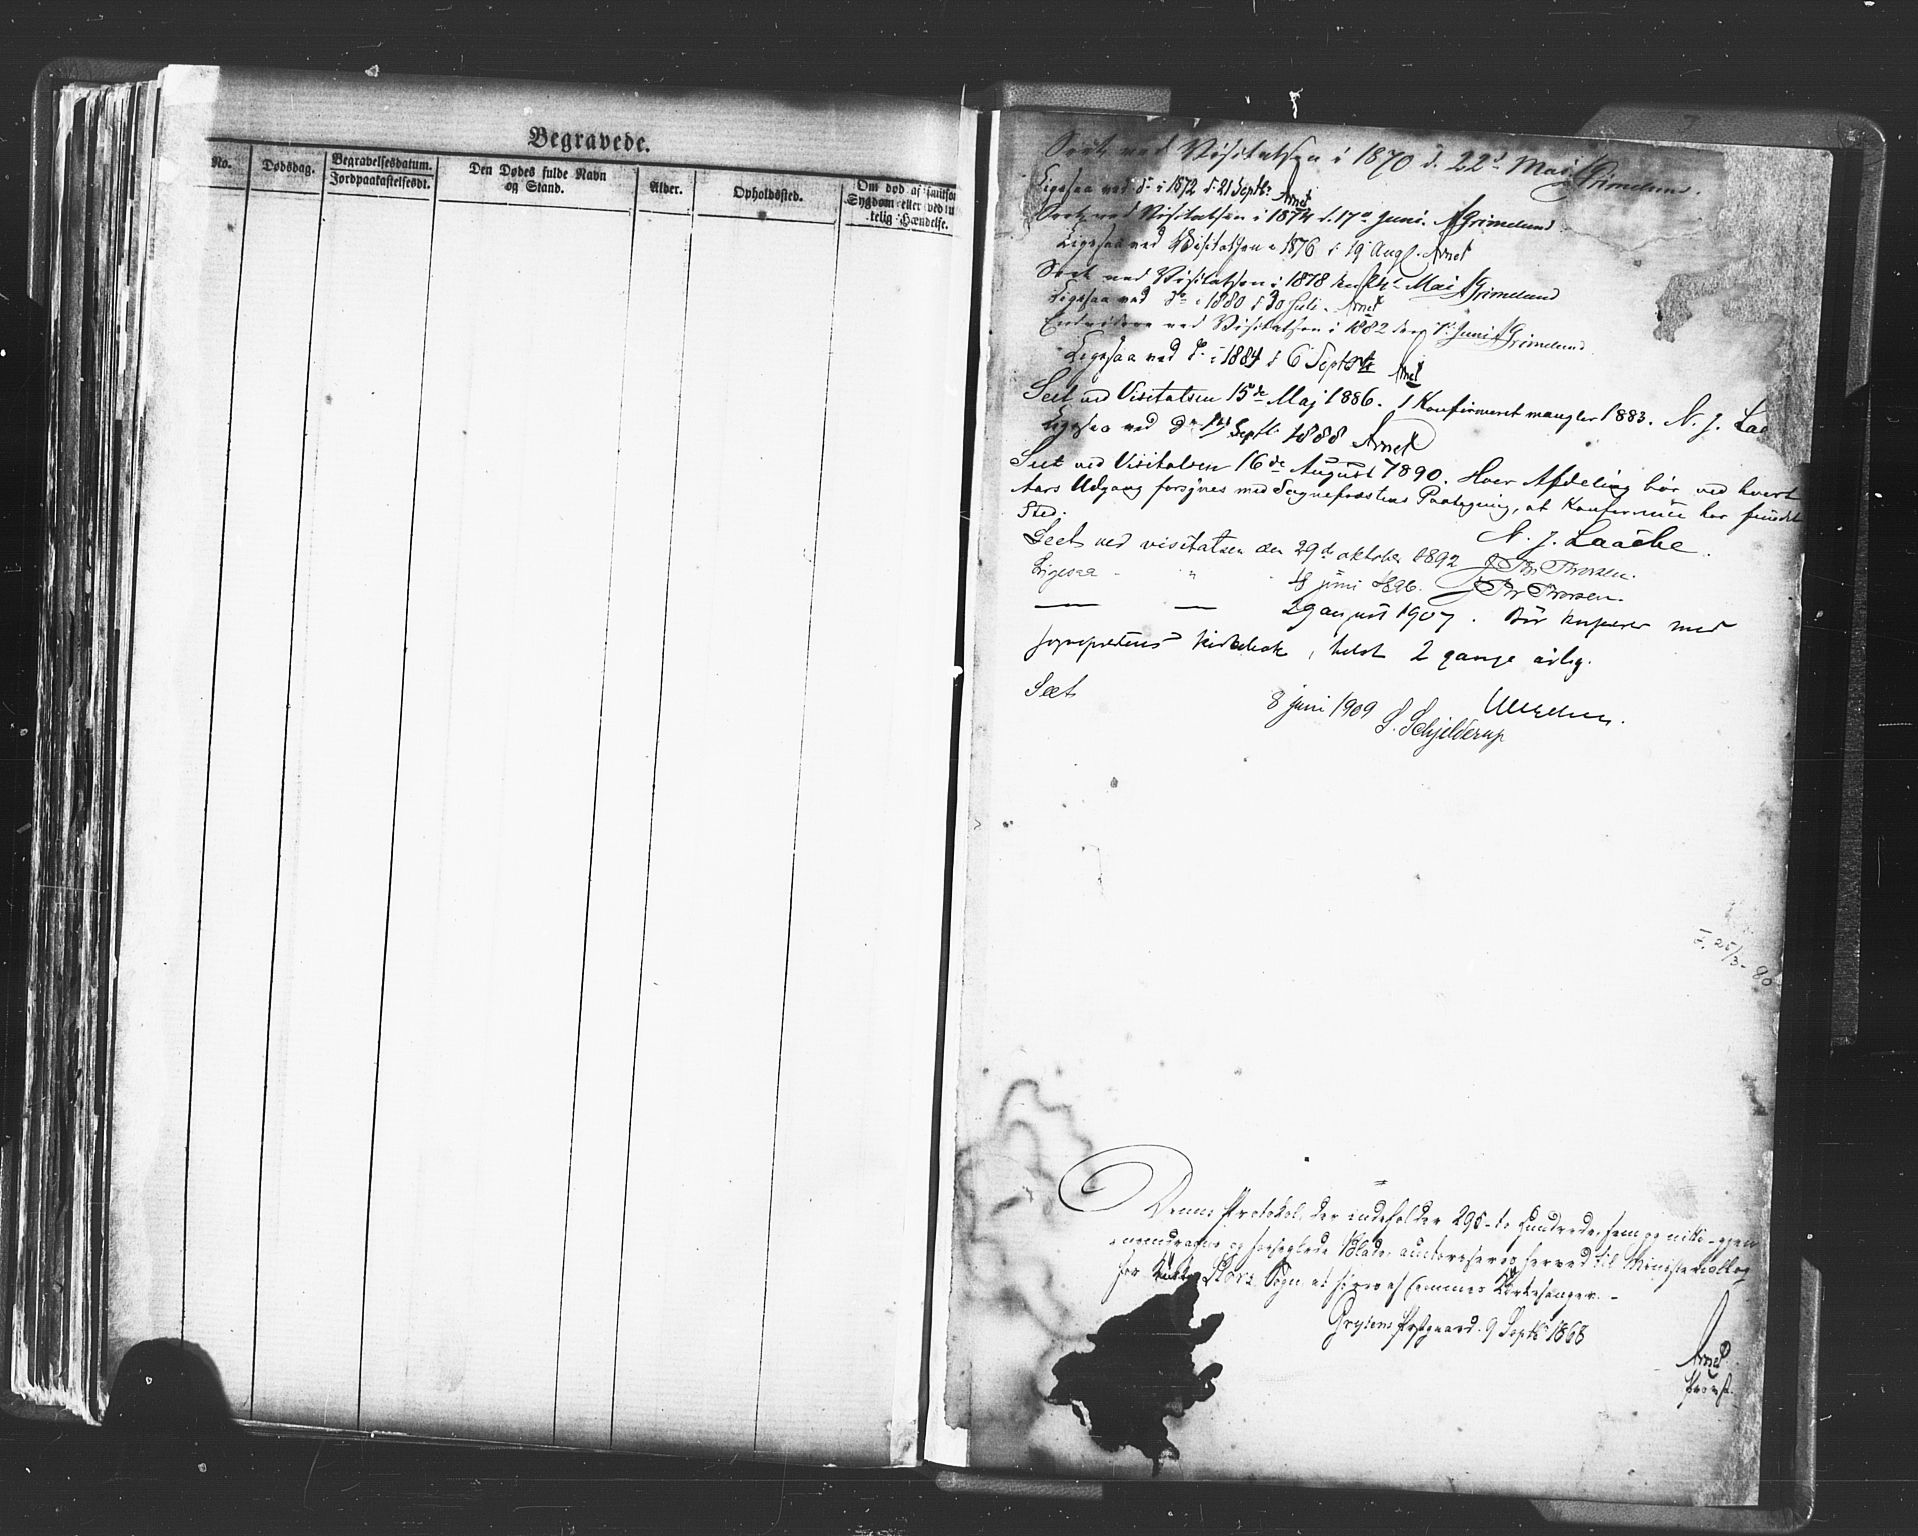 Begravede.
No.
Dødsdag.
Begravelsesdatum.
Jordpaakastelsesdt.
Den Dødes fulde Navn
og Stand.
Alder.
Opholdssted.
Om død af smitsom
Sygdom eller ved u
kelig Hændelse.
Seet ved Visitatsen i 1870 d. 22d Mai. AGrimelund.
Ligesaa ved do i 1872 d. 21 Septbr. Arnet
Seet ved Visitatsen i 1874 d. 17de Juni. AGrimelund
Ligesaa ved Visitatsen i 1876 d 19 Aug. Arnet
Seet ved Visitatsen i 1878 den Mai AGrimelund
Ligesaa ved do i 1880 d 30 Juli. Arnet
Endvidere ved Visitatsen i 1882 den Juni AGrimelund
Ligesaa ved do i 1884 d 6 Septbr Arnet
Seet ved Visitatsen 15de Maj 1886. 1 Konfirmeret mangler 1883. N. J. Laa
Ligesaa ved do Septbr 1888 Arnet
Seet ved Visitatsen 16de August 1890. Hver Afdeling bør ved hvert
Aars Udgang forsynes med Sognepræstens Paategning, at Konference har fundet
Sted.
N. J. Laache.
Seet ved visitatsen den 29de oktober 1892 J Thorsen.
Ligesaa " juni 1896. J Thorsen.
— — 29 august 1907. Bör konfereres med
sognepræstens kirkebok, helst 2 gange årlig.
Seet 8 juni 1909 S. Schjelderup
F. 25/3-80
Denne Protokol, der indeholder 295 - to Hundrede, fem og nitti - gjen
nemdragne og forseglede Blade, autoriseres herved til Ministerialbog
for Sogn, at føres af sammes Kirkesanger. -
Grytens Præstgaard. 9 Septbr 1868
Arnet
Provst.